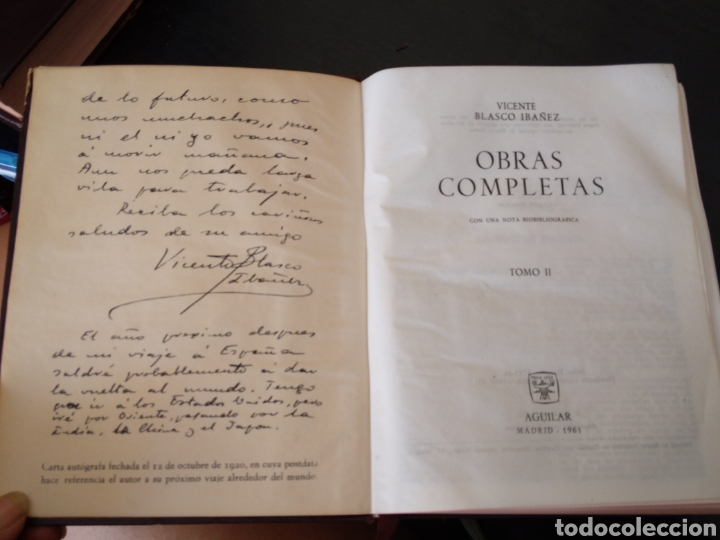 de lo futuro, como
unos muchachos, pues
ni el ni yo vamos
á morir mañana.
Aun nos queda larga
vida para trabajar.
Reciba los cariñosos
saludos de su amigo
Vicente Blasco
Ibañez
El año proximo despues
de mi viaje á España
saldré probablemente á dar
la vuelta al mundo. Tengo
que ir á los Estados Unidos, pero
iré por Oriente, pasando por la
India, la China y el Japon.
Carta autógrafa fechada el 12 de octubre de 1920, en cuya postdata
hace referencia el autor a su próximo viaje alrededor del mundo.
VICENTE
BLASCO IBAÑEZ
OBRAS
COMPLETAS
CON UNA NOTA BIOBIBLIOGRAFICA
TOMO II
AGUILAR
MADRID - 1961
todocoleccion